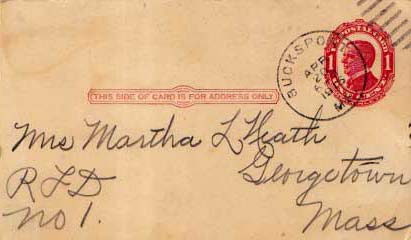 U.S. POSTAL CARD
1 1
BUCKSPORT
APR
THIS SIDE OF CARD IS FOR ADDRESS ONLY
Mrs Martha L Heath
RFD Georgetown
No 1. Mass